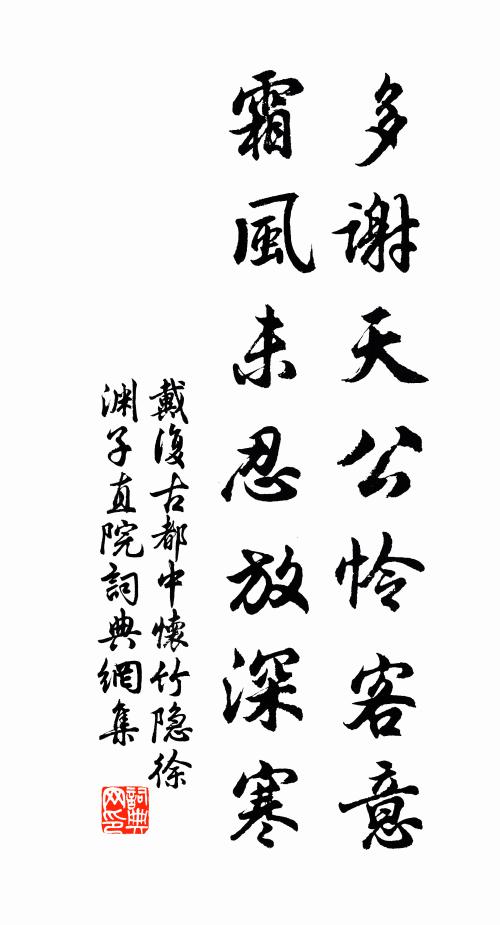 多谢天公怜客意
霜風未忍放深寒
戴復古都中懷竹隐徐
渊子直院詞典網集
詞典网印